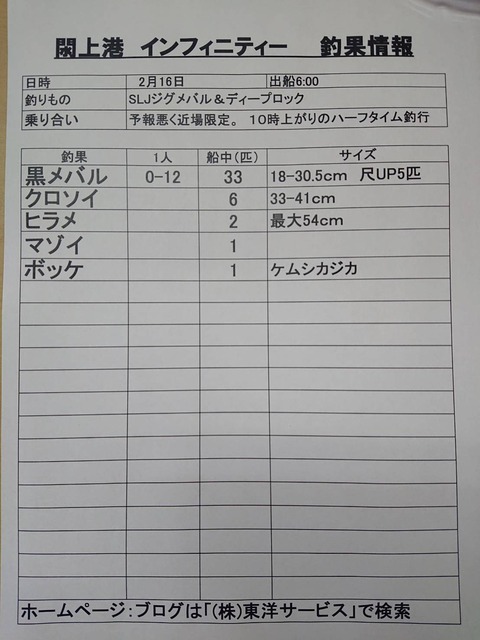 閖上港 インフィニティー 釣果情報
日時 2月16日 出船6:00
釣りもの SLJジグメバル＆ディープロック
乗り合い 予報悪く近場限定。 10時上がりのハーフタイム釣行
釣果 1人 船中(匹) サイズ
黒メバル 0-12 33 18-30.5cm 尺UP5匹
クロソイ 6 33-41cm
ヒラメ 2 最大54cm
マゾイ 1
ボッケ 1 ケムシカジカ
ホームページ：ブログは「(株)東洋サービス」で検索